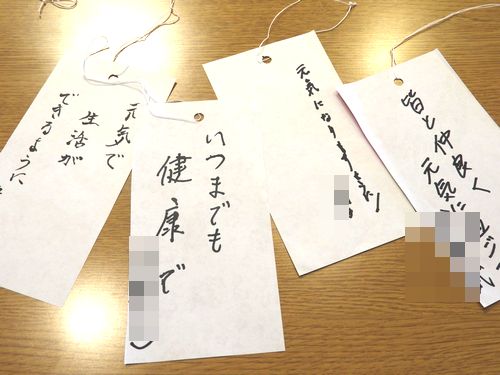 元気で
生活が
できるように
いつまでも
健康で
元気になりますように!
皆と仲良く
元気に